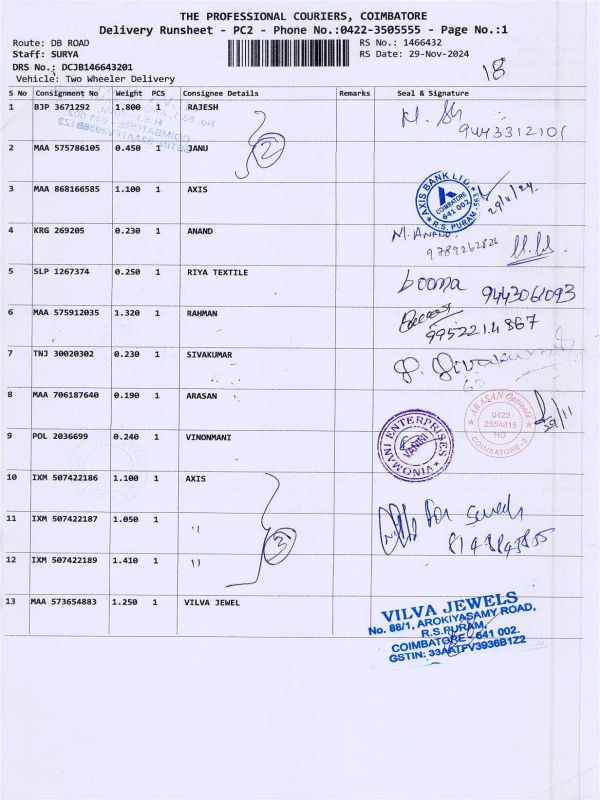 THE PROFESSIONAL COURIERS, COIMBATORE
Delivery Runsheet - PC2 - Phone No.:0422-3505555 - Page No.:1
Route: DB ROAD RS No.: 1466432
Staff: SURYA RS Date: 29-Nov-2024
DRS No.: DCJB146643201
Vehicle: Two Wheeler Delivery
18
S No Consignment No Weight PCS Consignee Details Remarks Seal & Signature
1 BJP 3671292 1.800 1 RAJESH
9443312101
2 MAA 575786105 0.450 1 JANU
2
3 MAA 868166585 1.100 1 AXIS
AXIS BANK LTD
COIMBATORE
641 002
R.S. PURAM
29/11/24
4 KRG 269205 0.230 1 ANAND M. Anand
9789262826
5 SLP 1267374 0.250 1 RIYA TEXTILE booma 9443061093
6 MAA 575912035 1.320 1 RAHMAN
9952214867
7 TNJ 30020302 0.230 1 SIVAKUMAR P. Sivakumar
8 MAA 706187640 0.190 1 ARASAN
ARASAN Opticals
0422-
2554815
HO
COIMBATORE-2
29/11
9 POL 2036699 0.240 1 VINONMANI
VINOMANI ENTERPRISES
10 IXM 507422186 1.100 1 AXIS
11 IXM 507422187 1.050 1 ''
3
12 IXM 507422189 1.410 1 ''
13 MAA 573654883 1.250 1 VILVA JEWEL
VILVA JEWELS
No. 88/1, AROKIYASAMY ROAD,
R.S.PURAM,
COIMBATORE - 641 002.
GSTIN: 33AATPV3936B1Z2